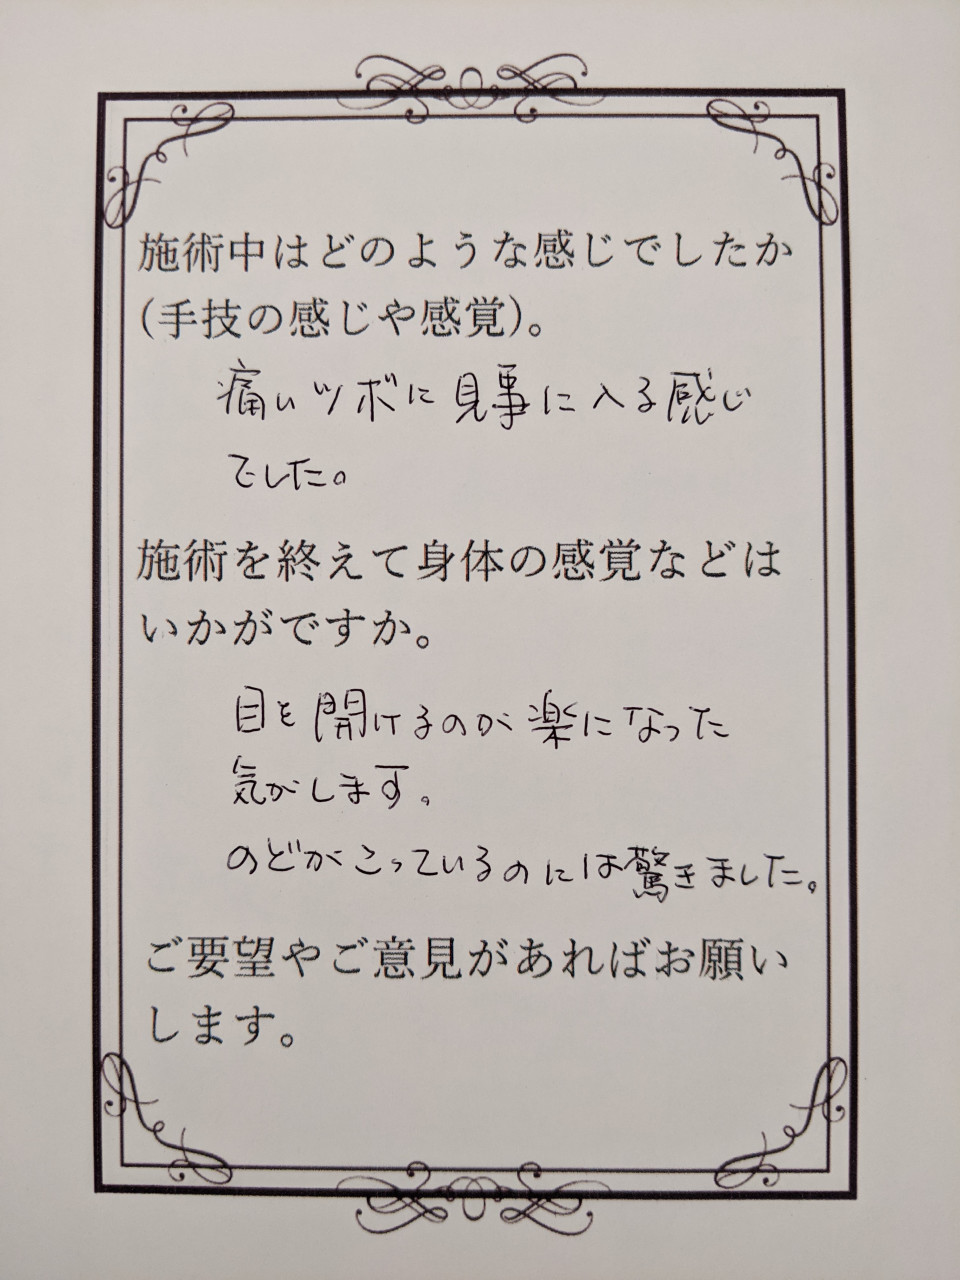 施術中はどのような感じでしたか
(手技の感じや感覚)。
痛いツボに見事に入る感じ
でした。
施術を終えて身体の感覚などは
いかがですか。
目を開けるのが楽になった
気がします。
のどがこっているのには驚きました。
ご要望やご意見があればお願い
します。